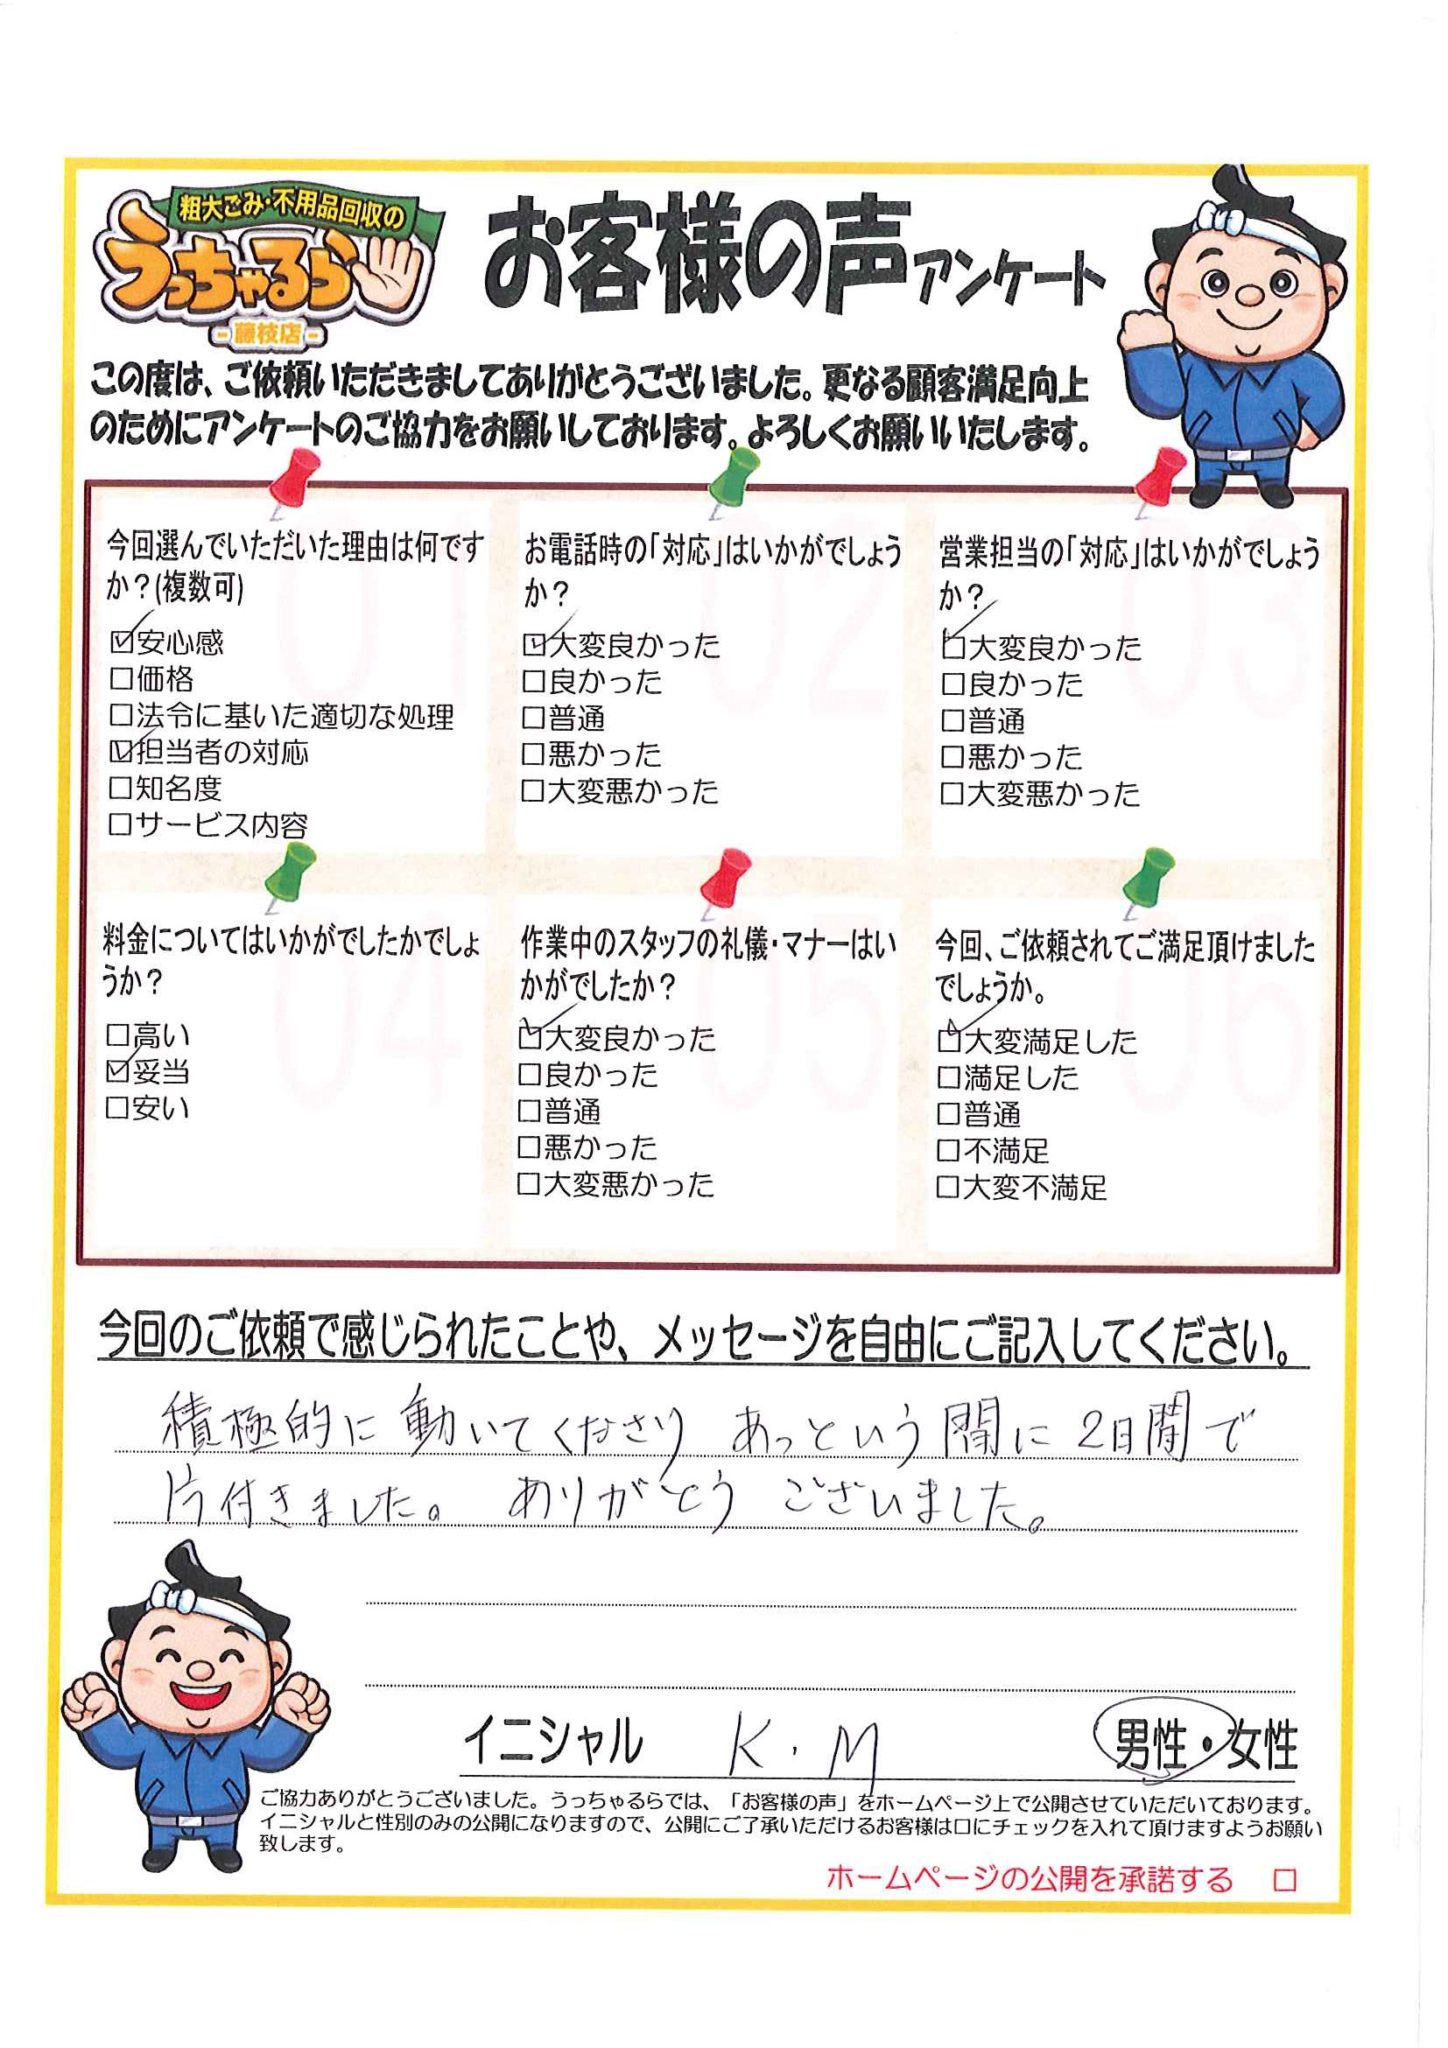 粗大ごみ・不用品回収の
うっちゃるら
-藤枝店-
お客様の声アンケート
この度は、ご依頼いただきましてありがとうございました。更なる顧客満足向上
のためにアンケートのご協力をお願いしております。よろしくお願いいたします。
01
今回選んでいただいた理由は何です
か？(複数可)
☑安心感
□価格
□法令に基いた適切な処理
☑担当者の対応
□知名度
□サービス内容
02
お電話時の「対応」はいかがでしょう
か？
☑大変良かった
□良かった
□普通
□悪かった
□大変悪かった
03
営業担当の「対応」はいかがでしょう
か？
☑大変良かった
□良かった
□普通
□悪かった
□大変悪かった
04
料金についてはいかがでしたかでしょ
うか？
□高い
☑妥当
□安い
05
作業中のスタッフの礼儀・マナーはい
かがでしたか？
☑大変良かった
□良かった
□普通
□悪かった
□大変悪かった
06
今回、ご依頼されてご満足頂けました
でしょうか。
☑大変満足した
□満足した
□普通
□不満足
□大変不満足
今回のご依頼で感じられたことや、メッセージを自由にご記入してください。
積極的に動いてくださり あっという間に2日間で
片付きました。 ありがとう ございました。
イニシャル K．M 男性・女性
ご協力ありがとうございました。うっちゃるらでは、「お客様の声」をホームページ上で公開させていただいております。
イニシャルと性別のみの公開になりますので、公開にご了承いただけるお客様は口にチェックを入れて頂けますようお願い
致します。
ホームページの公開を承諾する □